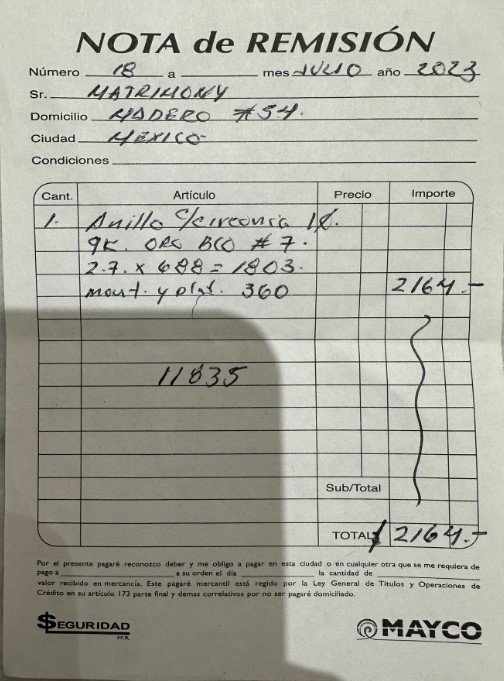 NOTA de REMISIÓN
Número 18 a mes JULIO año 2023
Sr. MATRIMONY
Domicilio MADERO #54.
Ciudad MEXICO-
Condiciones
Cant. Artículo Precio Importe
1. Anillo c/circonia
9K. ORO BCO #7.
2.7. x 688 = 1803.
mont. y 360 2164.-
11835
Sub/Total
TOTAL $ 2164.-
Por el presente pagaré reconozco deber y me obligo a pagar en esta ciudad o en cualquier otra que se me requiera de
pago a a su orden el día la cantidad de
valor recibido en mercancia. Este pagaré mercantil está regido por la Ley General de Titulos y Operaciones de
Crédito en su artículo 173 parte final y demas correlativos por no ser pagaré domiciliado.
SEGURIDAD
MAYCO